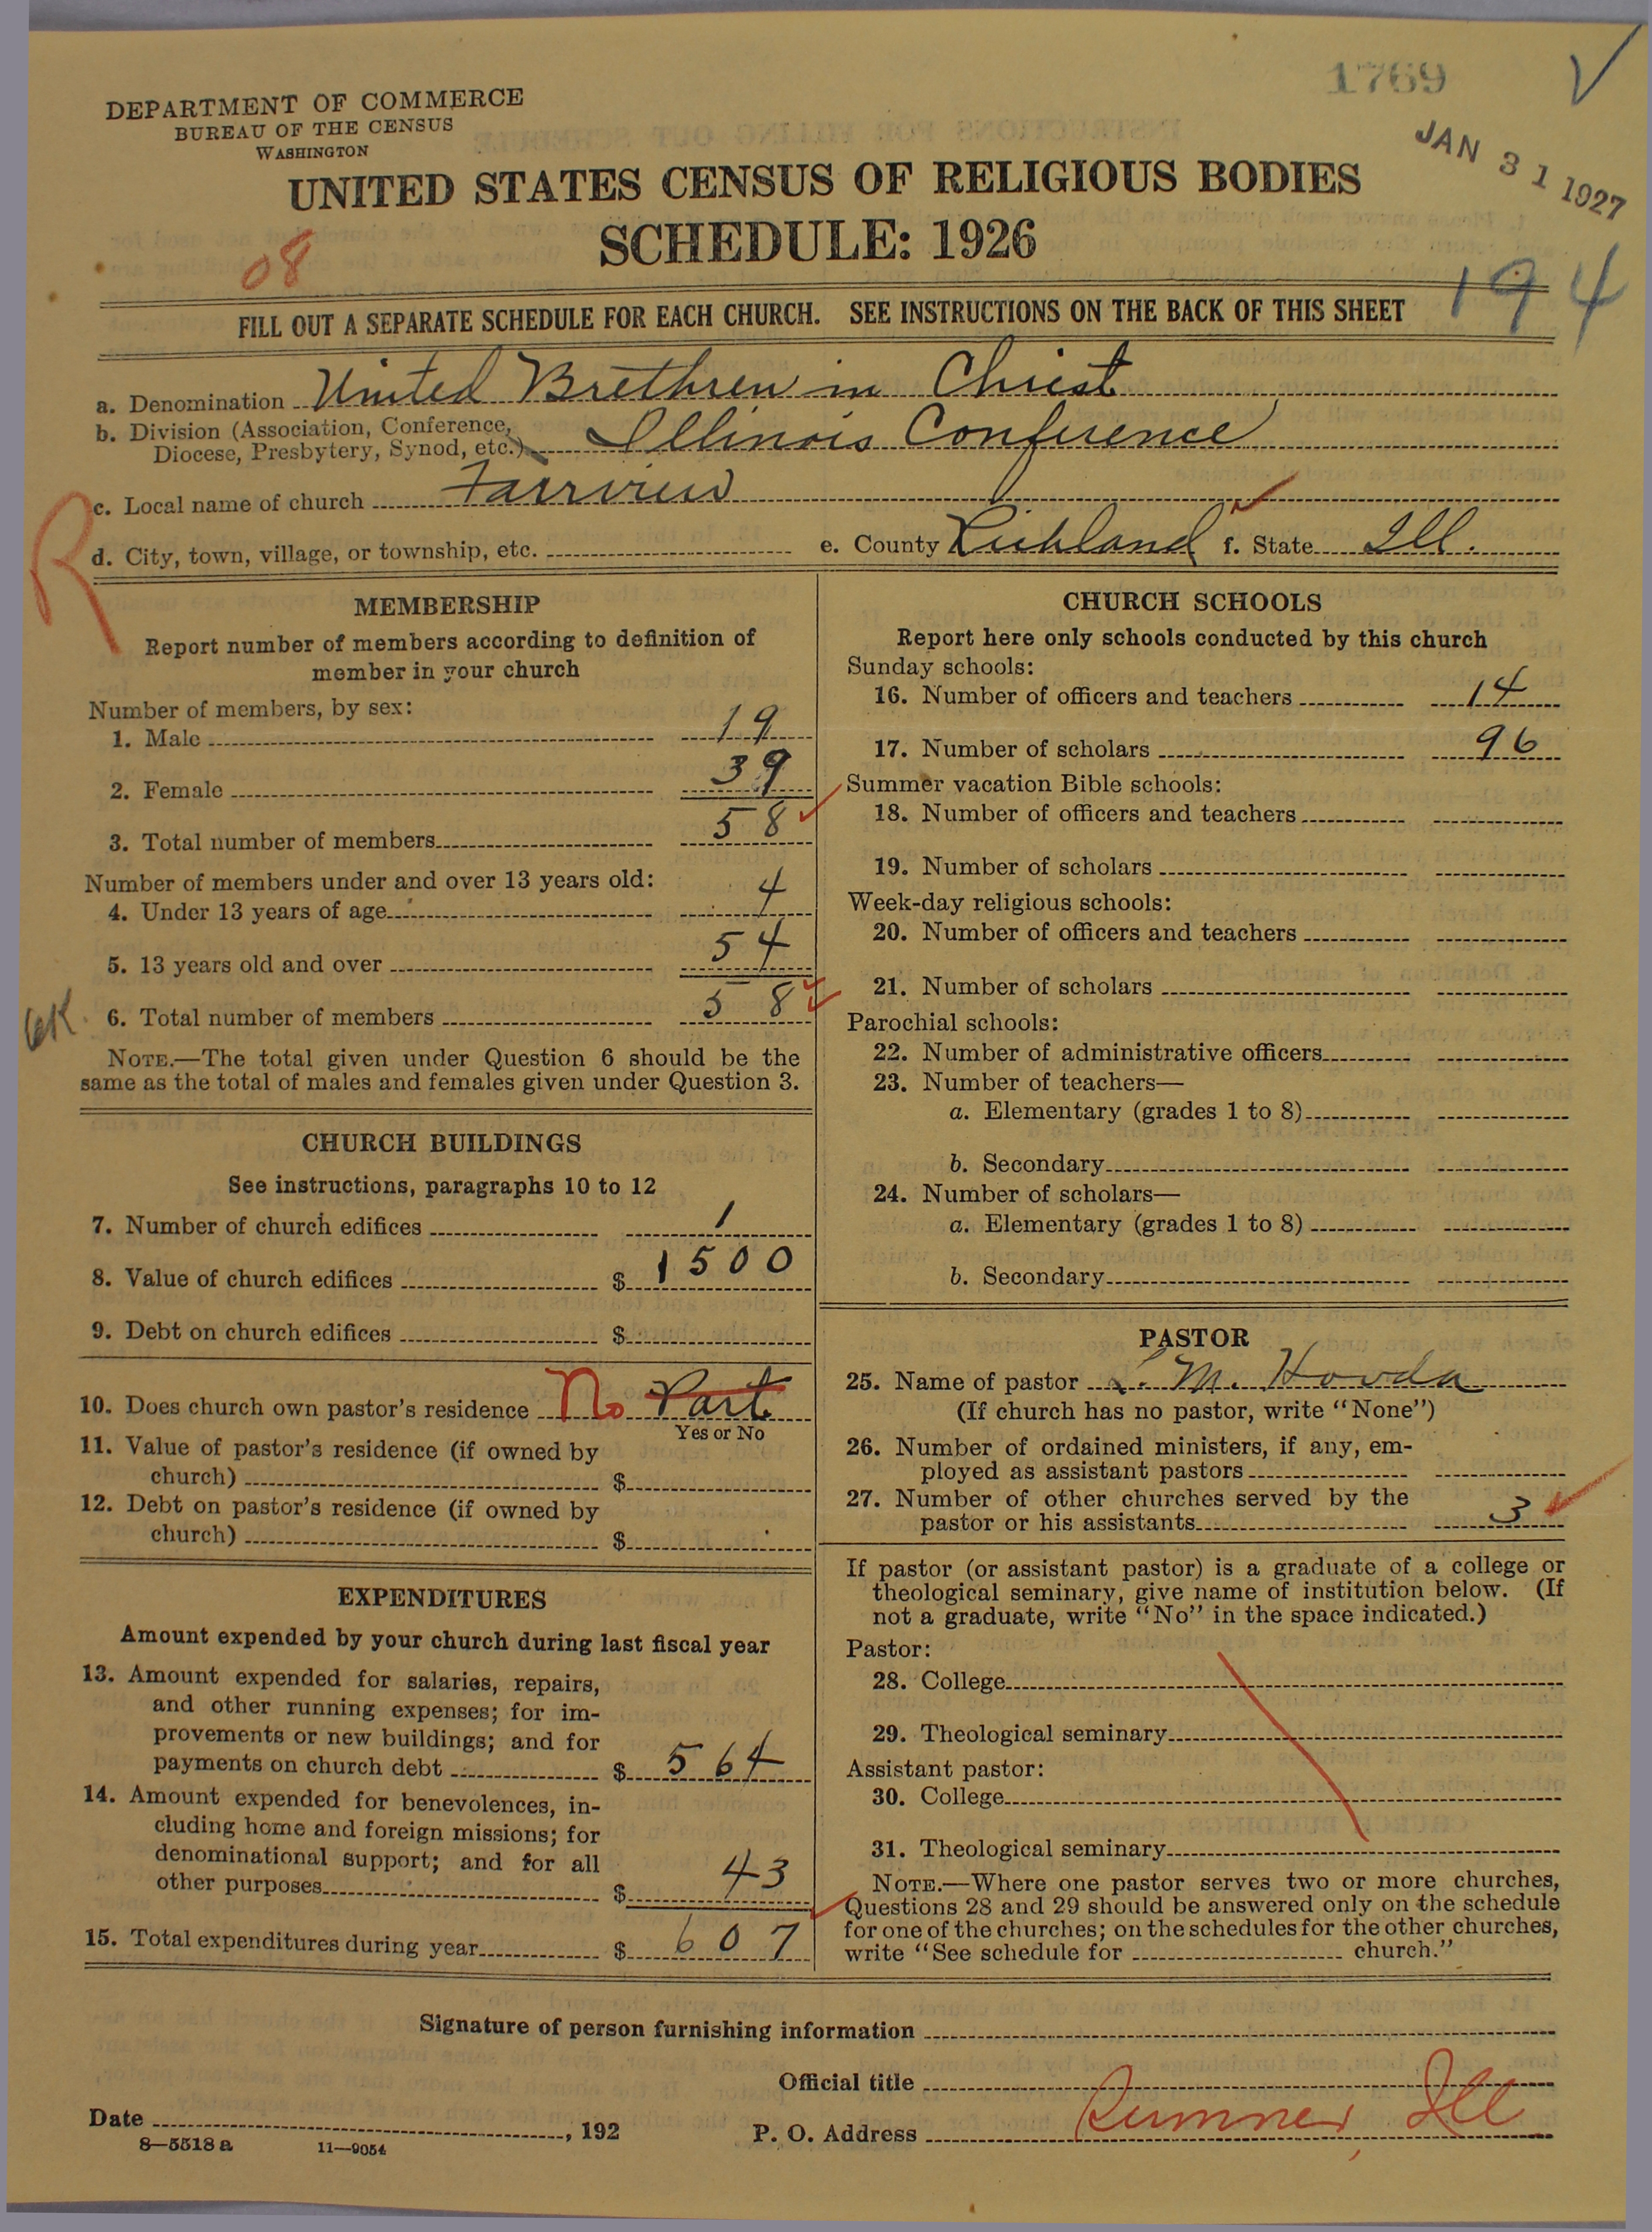 1769
DEPARTMENT OF COMMERCE
BUREAU OF THE CENSUS
WASHINGTON
JAN 31 1927
UNITED STATES CENSUS OF RELIGIOUS BODIES
SCHEDULE: 1926
08
194
FILL OUT A SEPARATE SCHEDULE FOR EACH CHURCH. SEE INSTRUCTIONS ON THE BACK OF THIS SHEET
a. Denomination United Brethren in Christ
b. Division (Association, Conference,
Diocese, Presbytery, Synod, etc.) Illinois Conference
c. Local name of church Fairview
R
d. City, town, village, or township, etc. e. County Richland f. State Ill.
MEMBERSHIP
Report number of members according to definition of
member in your church
Number of members, by sex:
1. Male 19
2. Female 39
3. Total number of members 58
Number of members under and over 13 years old:
4. Under 13 years of age 4
5. 13 years old and over 54
6. Total number of members 58
NOTE.—The total given under Question 6 should be the
same as the total of males and females given under Question 3.
CHURCH BUILDINGS
See instructions, paragraphs 10 to 12
7. Number of church edifices 1
8. Value of church edifices $ 1500
9. Debt on church edifices $
10. Does church own pastor's residence No Part
Yes or No
11. Value of pastor's residence (if owned by
church) $
12. Debt on pastor's residence (if owned by
church) $
EXPENDITURES
Amount expended by your church during last fiscal year
13. Amount expended for salaries, repairs,
and other running expenses; for im-
provements or new buildings; and for
payments on church debt $ 564
14. Amount expended for benevolences, in-
cluding home and foreign missions; for
denominational support; and for all
other purposes $ 43
15. Total expenditures during year $ 607
CHURCH SCHOOLS
Report here only schools conducted by this church
Sunday schools:
16. Number of officers and teachers 14
17. Number of scholars 96
Summer vacation Bible schools:
18. Number of officers and teachers
19. Number of scholars
Week-day religious schools:
20. Number of officers and teachers
21. Number of scholars
Parochial schools:
22. Number of administrative officers
23. Number of teachers—
a. Elementary (grades 1 to 8)
b. Secondary
24. Number of scholars—
a. Elementary (grades 1 to 8)
b. Secondary
PASTOR
25. Name of pastor M. Hovda
(If church has no pastor, write "None")
26. Number of ordained ministers, if any, em-
ployed as assistant pastors
27. Number of other churches served by the
pastor or his assistants 3
If pastor (or assistant pastor) is a graduate of a college or
theological seminary, give name of institution below. (If
not a graduate, write "No" in the space indicated.)
Pastor:
28. College
29. Theological seminary
Assistant pastor:
30. College
31. Theological seminary
NOTE.—Where one pastor serves two or more churches,
Questions 28 and 29 should be answered only on the schedule
for one of the churches; on the schedules for the other churches,
write "See schedule for church."
Signature of person furnishing information
Official title
Date , 192
P. O. Address Sumner, Ill
8—5518 a 11—9054